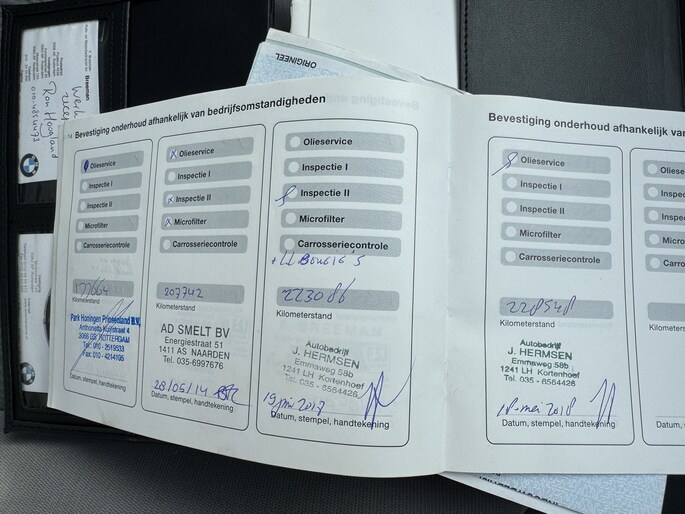 ORIGINEEL
Breeman
Ron Hoogland
14 Bevestiging onderhoud afhankelijk van bedrijfsomstandigheden
Olieservice
Inspectie I
Inspectie II
Microfilter
Carrosseriecontrole
177664
Kilometerstand
Park Honingen Prinsenland B.V.
3066 GS ROTTERDAM
Tel.: 010 - 2519533
Fax: 010 - 4214105
Datum, stempel, handtekening
x Olieservice
Inspectie I
x Inspectie II
x Microfilter
Carrosseriecontrole
207742
Kilometerstand
AD SMELT BV
Energiestraat 51
1411 AS NAARDEN
Tel. 035-6997676
28/05/14
Datum, stempel, handtekening
Olieservice
Inspectie I
Inspectie II
Microfilter
Carrosseriecontrole
+ LL Bougie's
223086
Kilometerstand
Autobedrijf
J. HERMSEN
Emmaweg 58b
1241 LH Kortenhoef
Tel. 035 - 6564426
19 juni 2017
Datum, stempel, handtekening
Bevestiging onderhoud afhankelijk van
Olieservice
Inspectie I
Inspectie II
Microfilter
Carrosseriecontrole
228548
Kilometerstand
Autobedrijf
J. HERMSEN
Emmaweg 58b
1241 LH Kortenhoef
Tel. 035 - 6564426
18-mei 2018
Datum, stempel, handtekening